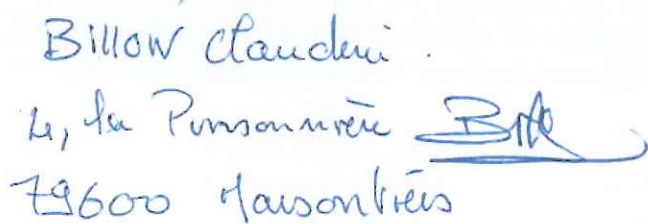 BILLON Claudini.
4, la Poissonnière
79600 Maisontiers